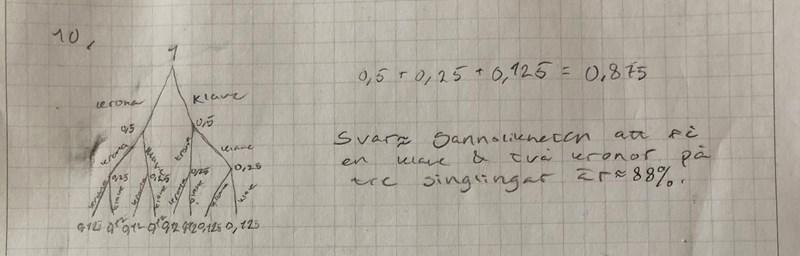 10.
1
krona klave
0,5 0,5
krona klave krona klave
0,25 0,25 0,25 0,25
krona klave krona klave krona klave krona klave
0,125 0,12 0,12 0,12 0,12 0,12 0,125 0,125
0,5 + 0,25 + 0,125 = 0,875
Svar: Sannolikheten att få
en klave & två kronor på
tre singlingar är ≈ 88%.